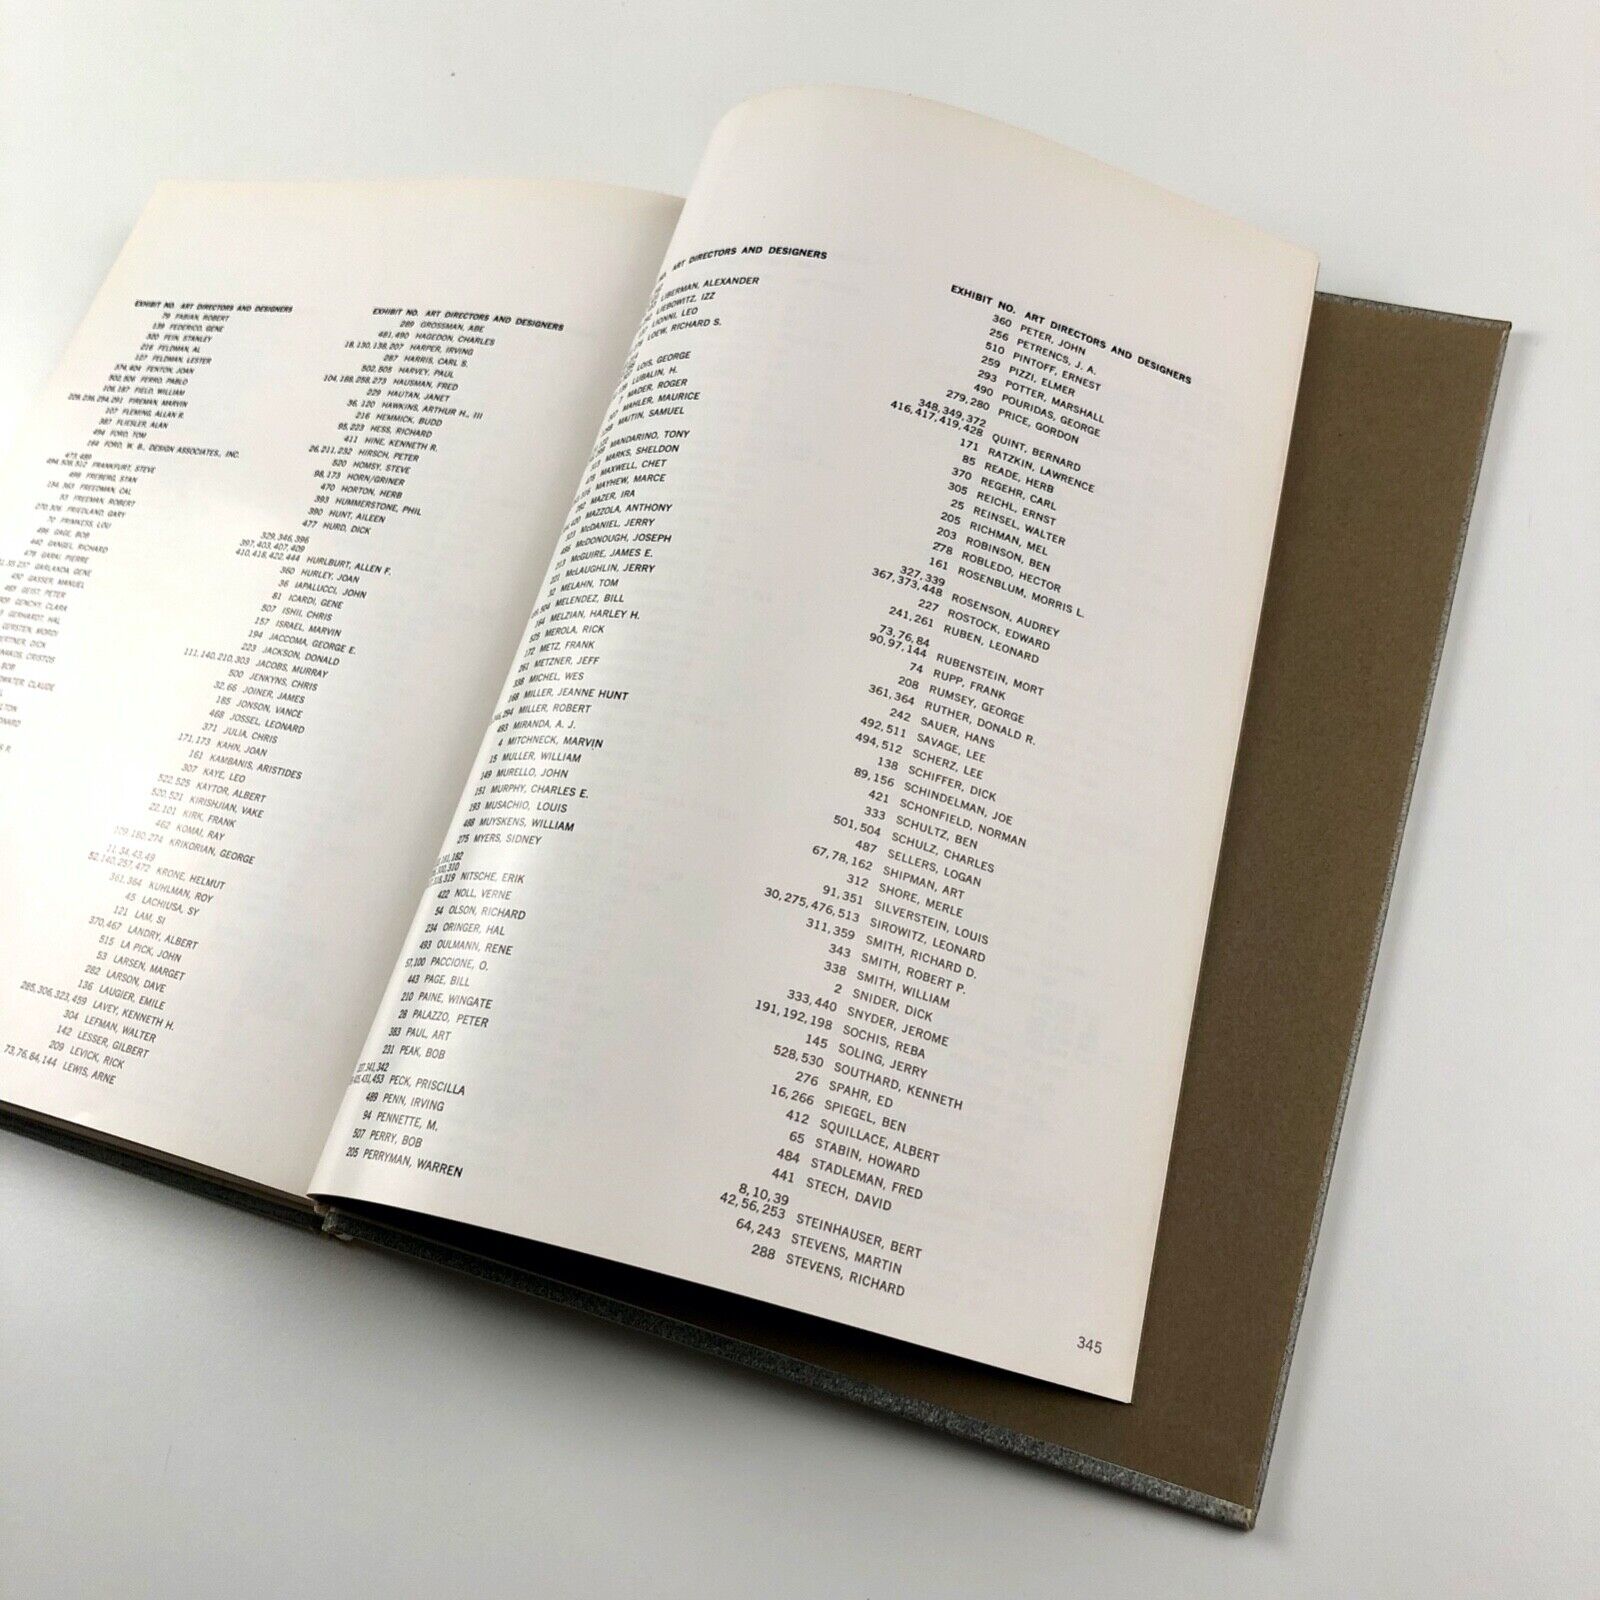 EXHIBIT NO. ART DIRECTORS AND DESIGNERS
79 FABIAN, ROBERT
139 FEDERICO, GENE
320 FEIN, STANLEY
216 FELDMAN, AL
127 FELDMAN, LESTER
374,404 FENTON, JOAN
502,506 FERRO, PABLO
106,187 FIELD, WILLIAM
229,236,294,291 FIREMAN, MARVIN
107 FLEMING, ALLAN R.
387 FLIESLER, ALAN
494 FORD, TOM
164 FORD, W. B., DESIGN ASSOCIATES, INC.
473,489
494,508,512 FRANKFURT, STEVE
498 FREBERG, STAN
134,363 FREEDMAN, CAL
53 FREEMAN, ROBERT
270,306 FRIEDLAND, GARY
70 FRINKESS, LOU
496 GAGE, BOB
442 GANGEL, RICHARD
479 GARAI, PIERRE
GARLANDA, GENE
492 GASSER, MANUEL
465 GEIST, PETER
GENCHY, CLARA
GERHARDT, HAL
GERSTEN, MORDI
DICK
CRISTOS
BOB
CLAUDE
EXHIBIT NO. ART DIRECTORS AND DESIGNERS
289 GROSSMAN, ABE
481,490 HAGEDON, CHARLES
18,130,138,207 HARPER, IRVING
287 HARRIS, CARL S.
502,505 HARVEY, PAUL
104,188,258,273 HAUSMAN, FRED
229 HAUTAN, JANET
36,120 HAWKINS, ARTHUR H., III
216 HEMMICK, BUDD
95,223 HESS, RICHARD
411 HINE, KENNETH R.
26,211,232 HIRSCH, PETER
520 HOMSY, STEVE
98,173 HORN/GRINER
470 HORTON, HERB
393 HUMMERSTONE, PHIL
390 HUNT, AILEEN
477 HURD, DICK
329,346,396
397,403,407,409
410,418,422,444 HURLBURT, ALLEN F.
360 HURLEY, JOAN
36 IAPALUCCI, JOHN
81 ICARDI, GENE
507 ISHII, CHRIS
157 ISRAEL, MARVIN
194 JACCOMA, GEORGE E.
223 JACKSON, DONALD
111,140,210,303 JACOBS, MURRAY
500 JENKYNS, CHRIS
32,66 JOINER, JAMES
185 JONSON, VANCE
468 JOSSEL, LEONARD
371 JULIA, CHRIS
171,173 KAHN, JOAN
161 KAMBANIS, ARISTIDES
307 KAYE, LEO
522,525 KAYTOR, ALBERT
520,521 KIRISHJIAN, VAKE
22,101 KIRK, FRANK
462 KOMAI, RAY
129,180,274 KRIKORIAN, GEORGE
11,34,43,49
52,140,257,472 KRONE, HELMUT
361,364 KUHLMAN, ROY
45 LACHIUSA, SY
121 LAM, SI
370,467 LANDRY, ALBERT
515 LA PICK, JOHN
53 LARSEN, MARGET
282 LARSON, DAVE
136 LAUGIER, EMILE
285,306,323,459 LAVEY, KENNETH H.
304 LEFMAN, WALTER
142 LESSER, GILBERT
209 LEVICK, RICK
73,76,84,144 LEWIS, ARNE
NO. ART DIRECTORS AND DESIGNERS
LIBERMAN, ALEXANDER
LIEBOWITZ, IZZ
LIONNI, LEO
LOEW, RICHARD S.
LOIS, GEORGE
LUBALIN, H.
MADER, ROGER
MAHLER, MAURICE
MAITIN, SAMUEL
MANDARINO, TONY
MARKS, SHELDON
MAXWELL, CHET
MAYHEW, MARCE
MAZER, IRA
MAZZOLA, ANTHONY
McDANIEL, JERRY
McDONOUGH, JOSEPH
213 McGUIRE, JAMES E.
221 McLAUGHLIN, JERRY
32 MELAHN, TOM
504 MELENDEZ, BILL
164 MELZIAN, HARLEY H.
525 MEROLA, RICK
172 METZ, FRANK
261 METZNER, JEFF
338 MICHEL, WES
168 MILLER, JEANNE HUNT
294 MILLER, ROBERT
493 MIRANDA, A. J.
4 MITCHNECK, MARVIN
15 MULLER, WILLIAM
149 MURELLO, JOHN
151 MURPHY, CHARLES E.
293 MUSACHIO, LOUIS
488 MUYSKENS, WILLIAM
275 MYERS, SIDNEY
181,182
302,310
318,319 NITSCHE, ERIK
422 NOLL, VERNE
54 OLSON, RICHARD
234 ORINGER, HAL
493 OULMANN, RENE
57,100 PACCIONE, O.
443 PAGE, BILL
210 PAINE, WINGATE
28 PALAZZO, PETER
383 PAUL, ART
231 PEAK, BOB
341,342
433,453 PECK, PRISCILLA
489 PENN, IRVING
94 PENNETTE, M.
507 PERRY, BOB
205 PERRYMAN, WARREN
EXHIBIT NO. ART DIRECTORS AND DESIGNERS
360 PETER, JOHN
256 PETRENCS, J. A.
510 PINTOFF, ERNEST
259 PIZZI, ELMER
293 POTTER, MARSHALL
490 POURIDAS, GEORGE
279,280 PRICE, GORDON
348,349,372
416,417,419,428 QUINT, BERNARD
171 RATZKIN, LAWRENCE
85 READE, HERB
370 REGEHR, CARL
305 REICHL, ERNST
25 REINSEL, WALTER
205 RICHMAN, MEL
203 ROBINSON, BEN
278 ROBLEDO, HECTOR
161 ROSENBLUM, MORRIS L.
327,339
367,373,448 ROSENSON, AUDREY
227 ROSTOCK, EDWARD
241,261 RUBEN, LEONARD
73,76,84
90,97,144 RUBENSTEIN, MORT
74 RUPP, FRANK
208 RUMSEY, GEORGE
361,364 RUTHER, DONALD R.
242 SAUER, HANS
492,511 SAVAGE, LEE
494,512 SCHERZ, LEE
138 SCHIFFER, DICK
89,156 SCHINDELMAN, JOE
421 SCHONFIELD, NORMAN
333 SCHULTZ, BEN
501,504 SCHULZ, CHARLES
487 SELLERS, LOGAN
67,78,162 SHIPMAN, ART
312 SHORE, MERLE
91,351 SILVERSTEIN, LOUIS
30,275,476,513 SIROWITZ, LEONARD
311,359 SMITH, RICHARD D.
343 SMITH, ROBERT P.
338 SMITH, WILLIAM
2 SNIDER, DICK
333,440 SNYDER, JEROME
191,192,198 SOCHIS, REBA
145 SOLING, JERRY
528,530 SOUTHARD, KENNETH
276 SPAHR, ED
16,266 SPIEGEL, BEN
412 SQUILLACE, ALBERT
65 STABIN, HOWARD
484 STADLEMAN, FRED
441 STECH, DAVID
8,10,39
42,56,253 STEINHAUSER, BERT
64,243 STEVENS, MARTIN
288 STEVENS, RICHARD
345